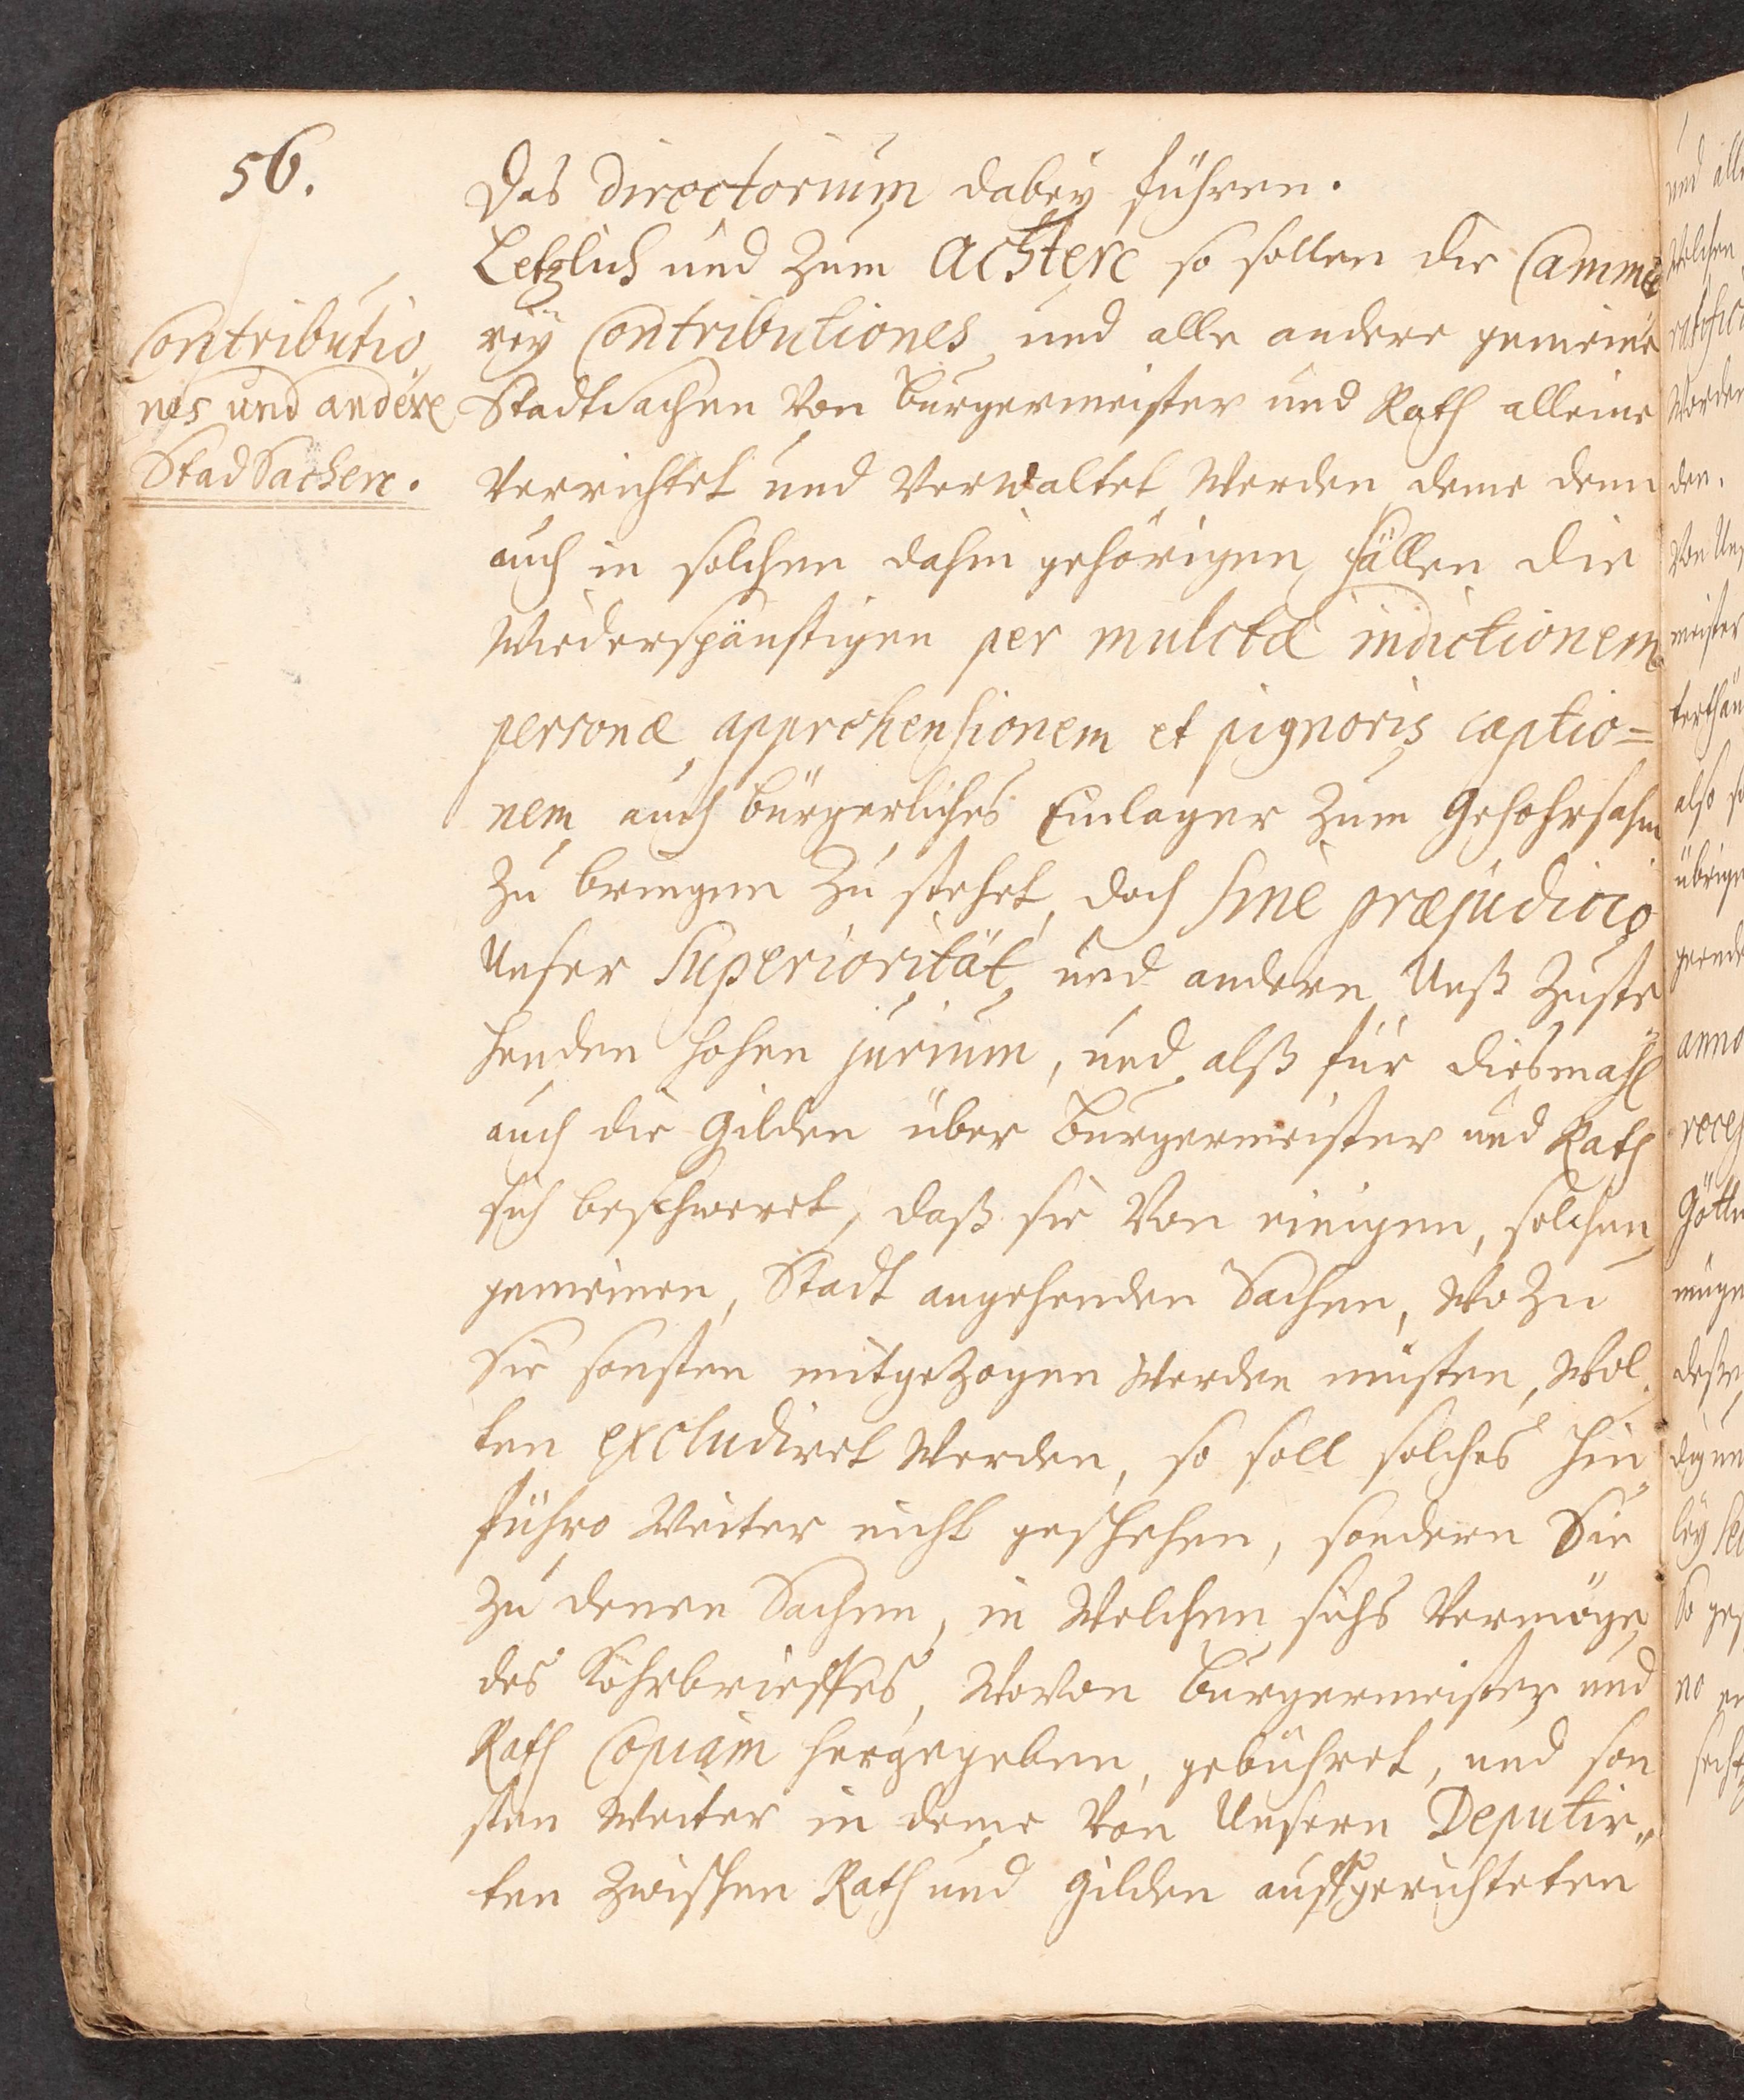 56.
Das Directorium dabey führen.
Letzlich und Zum Achten so sollen die Camme
rey Contributiones und alle andere gemeine
Contributio
nes und andere
Stad Sachen.
Stadtsachen Von Burgermeister und Rath alleine
Verrichtet und Verwaltet Werden deme denn
auch in solchen dahin gehörigen fällen die
Wiederspänstigen per mulctæ indictionem
personæ apprehensionem et pignoris captio=
nem auch bürgerliches Einlager Zum Gehohrsahm
Zu bringen Zu stehet, doch sine præjudicio
Unser Superiorität, und andern Unß Zuste
henden hohen jurium, und alß für diesmahl
auch die Gilden über Burgermeister und Rath
sich beschweret, daß sie Von einigen, solchen
gemeinen, Stadt angehenden Sachen, Wo Zu
Sie sonsten mitgezogen Werden müsten, Wol
ten excludiret Werden, so soll solches hin
führo Weiter nicht geschehen, sondern Sie
Zu denen Sachen, in Welchen sichs Vermöge
des Köhrbrieffes, Wovon Burgermeister und
Rath Copiam hergegeben, gebühret, und son
sten Weiter in deme Von Unsern Deputir„
ten Zwischen Rath und Gilden auffgerichteten
und alle
Welchen
Worden
den.
meister
also so
übrige
anno
recess